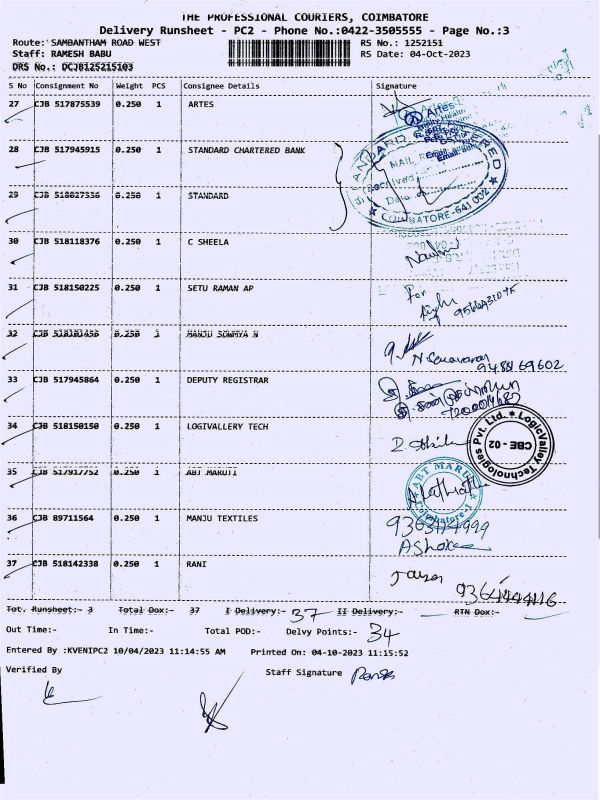 THE PROFESSIONAL COURIERS, COIMBATORE
Delivery Runsheet - PC2 - Phone No.:0422-3505555 - Page No.:3
Route: SAMBANTHAM ROAD WEST RS No.: 1252151
Staff: RAMESH BABU RS Date: 04-Oct-2023
DRS No.: DCJB125215103
S No Consignment No Weight PCS Consignee Details Signature
27 CJB 517875539 0.250 1 ARTES
Artes
28 CJB 517945915 0.250 1 STANDARD CHARTERED BANK
STANDARD CHARTERED
MAIL
Received
Date
COIMBATORE-641 002
29 CJB 518027336 0.250 1 STANDARD
30 CJB 518118376 0.250 1 C SHEELA
31 CJB 518150225 0.250 1 SETU RAMAN AP
For
32 CJB 0.250 1 MANJU SOWMYA N
N Saravanan
9488169602
33 CJB 517945864 0.250 1 DEPUTY REGISTRAR
34 CJB 518150150 0.250 1 LOGIVALLERY TECH
LogicValley Technologies Pvt. Ltd.
CBE - 02
35 CJB 517917752 0.250 1 ABT MARUTI
ABT MARUTI
Coimbatore-1
36 CJB 89711564 0.250 1 MANJU TEXTILES
Ashok
37 CJB 518142338 0.250 1 RANI
9364444116
Tot. Runsheet:- 3 Total Dox:- 37 I Delivery:- 37 II Delivery:- RTN Dox:-
Out Time:- In Time:- Total POD:- Delvy Points:- 34
Entered By :KVENIPC2 10/04/2023 11:14:55 AM Printed On: 04-10-2023 11:15:52
Verified By Staff Signature